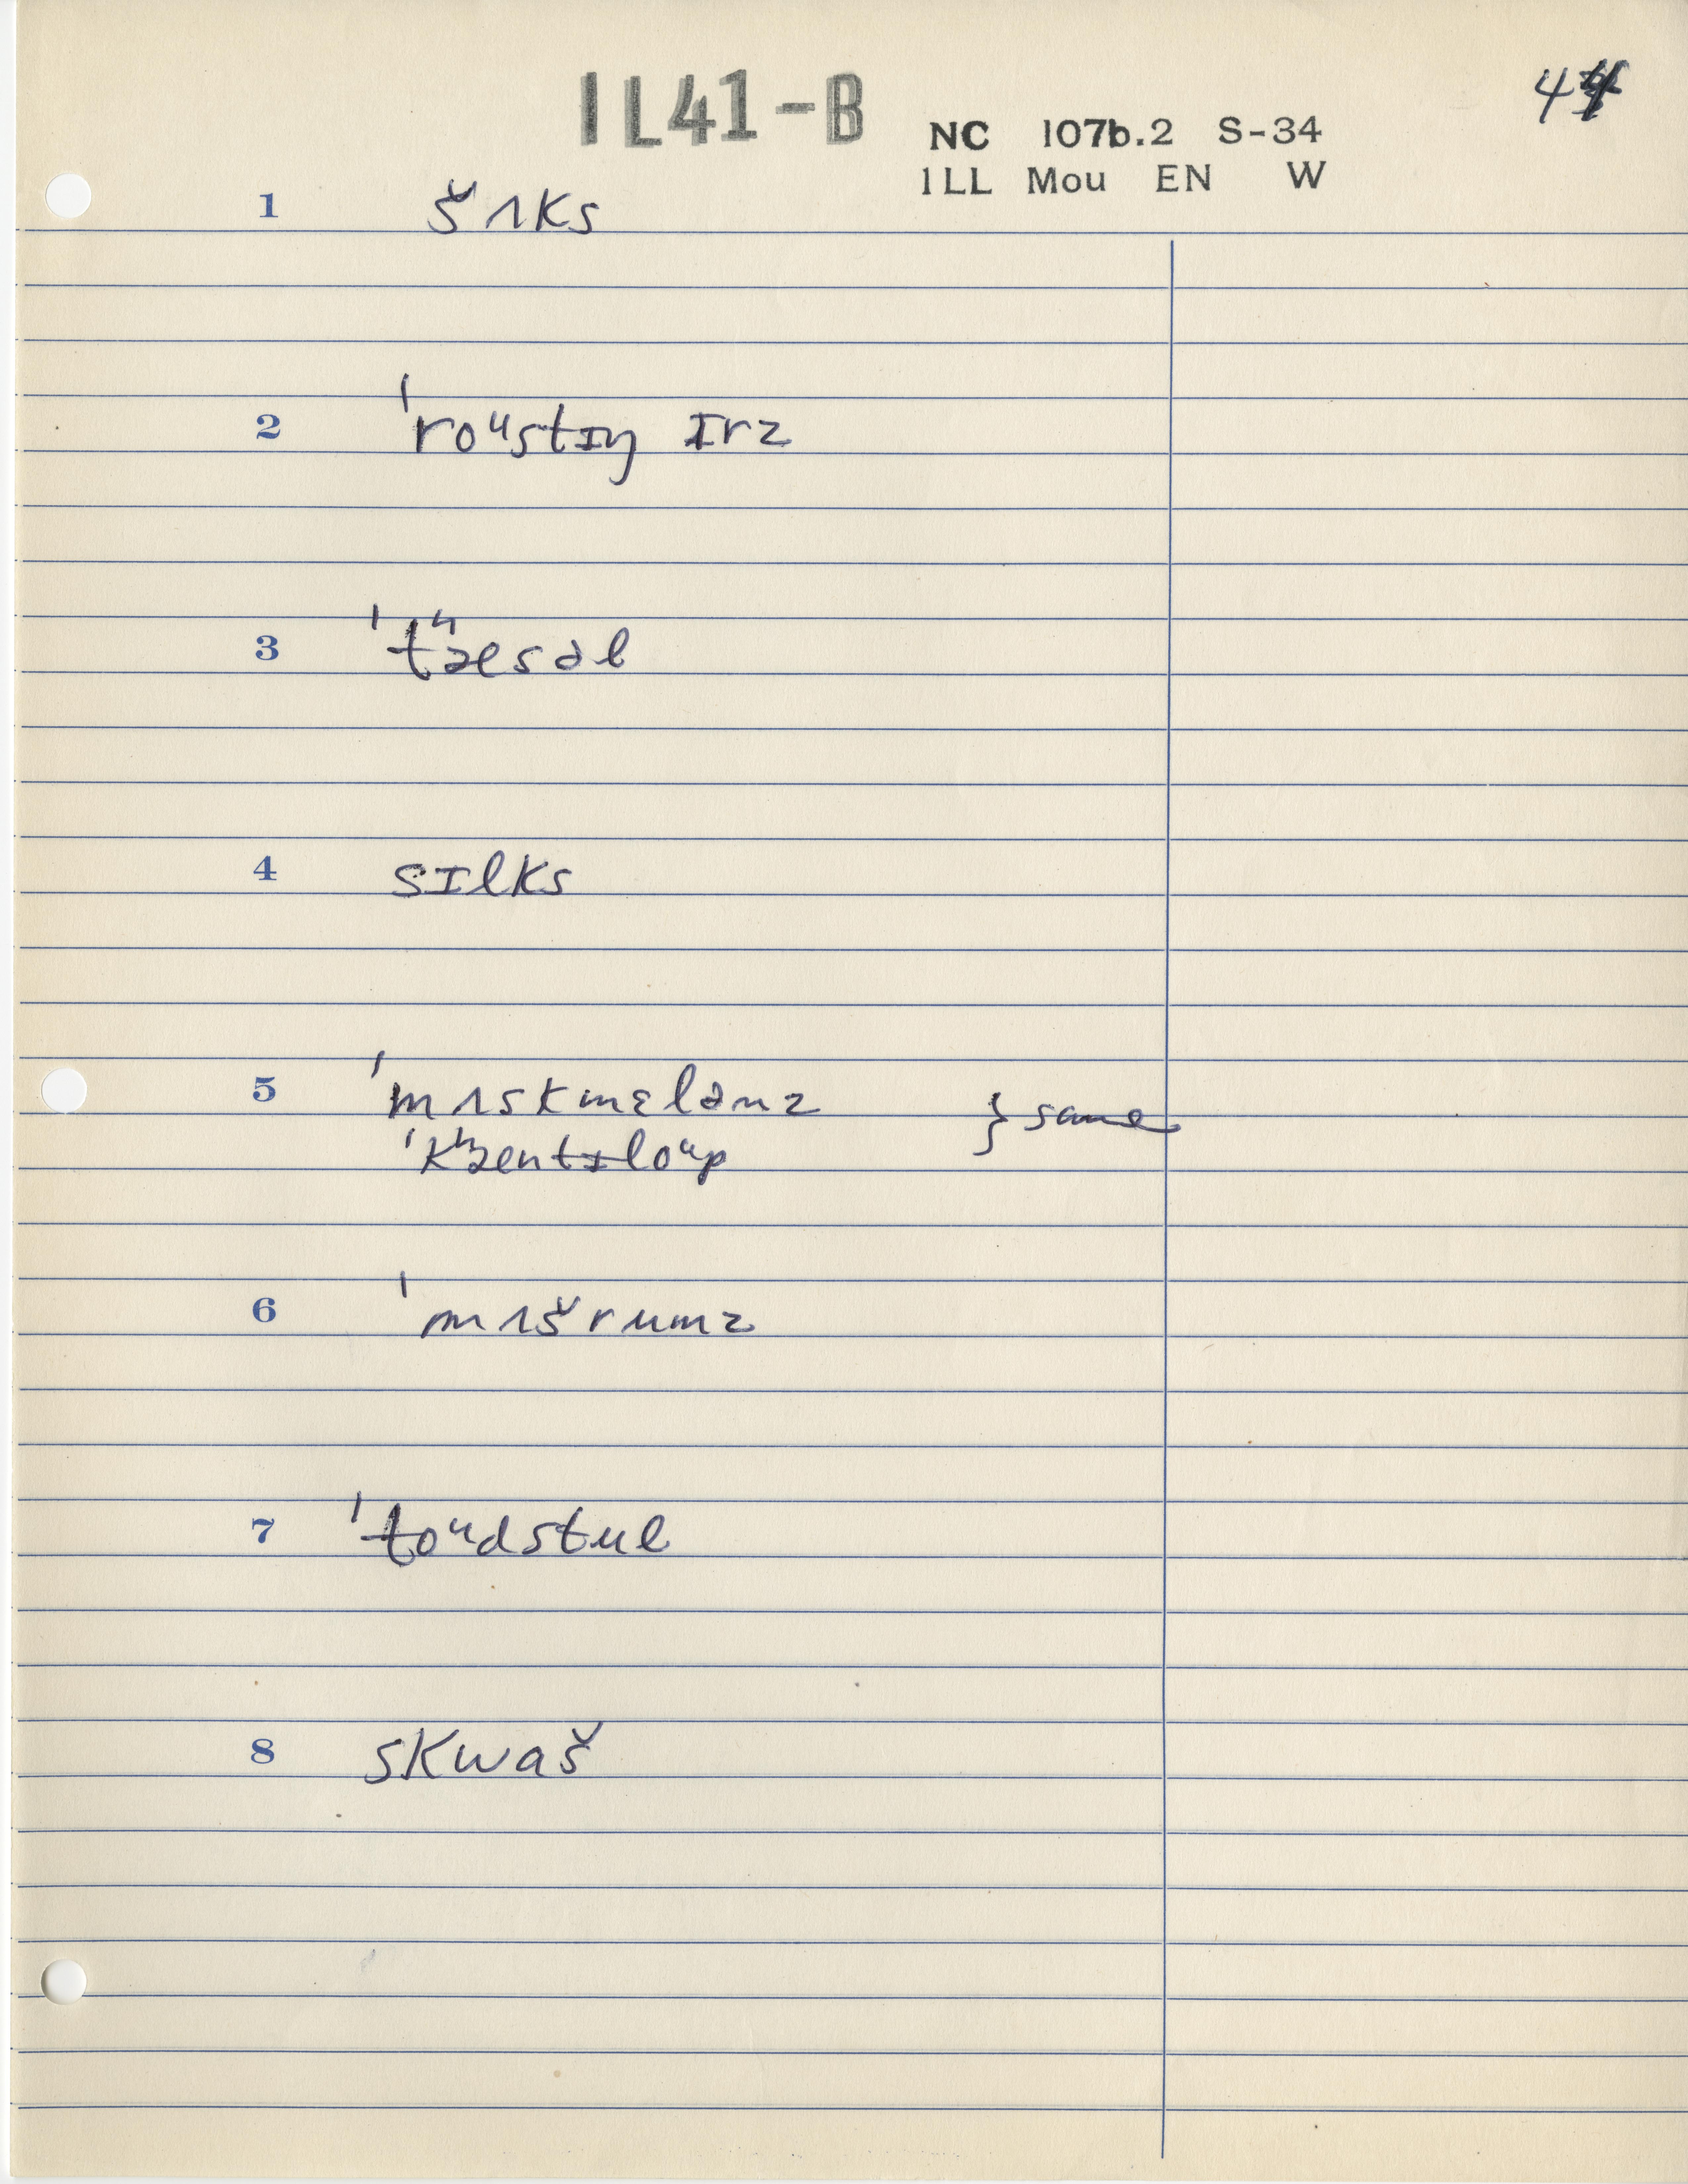 IL41-B
NC 107b.2 S-34
ILL Mou EN W
1 šʌks
2 ˈroᵘstɪŋ ɪrz
3 ˈtʰæsəl
4 sɪlks
5 ˈmʌskmɛlənz
ˈkʰæntɪloᵘp } same
6 ˈmʌšrumz
7 ˈtoᵘdstul
8 skwaš